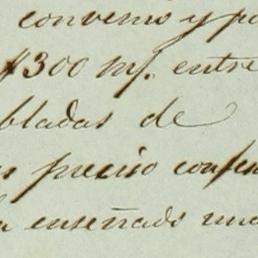 convenio y po
$300 mf. entre
bladas de
es preciso confen
la enseñado una